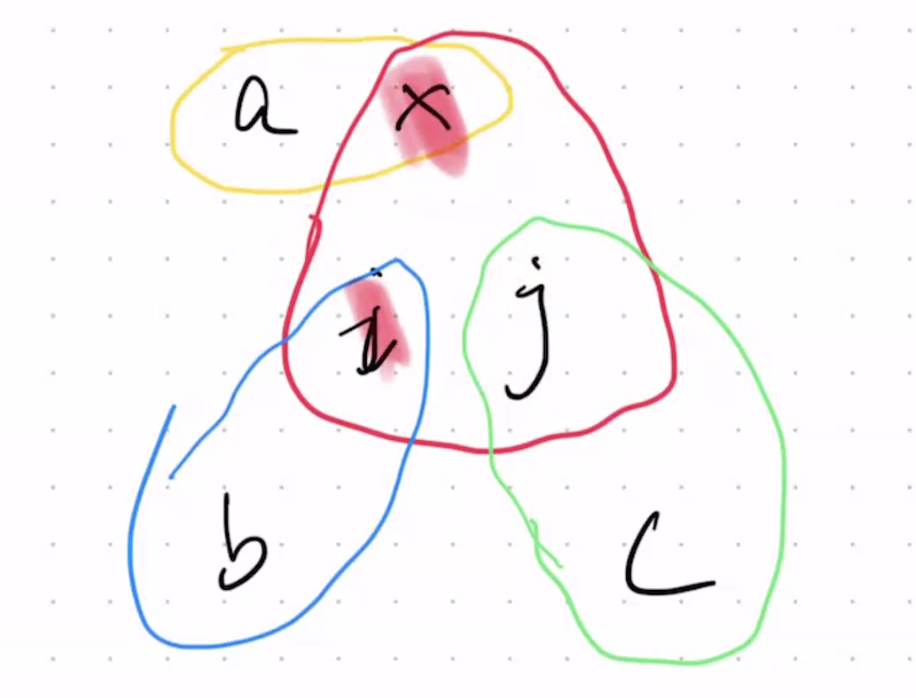 a x
i j
b c